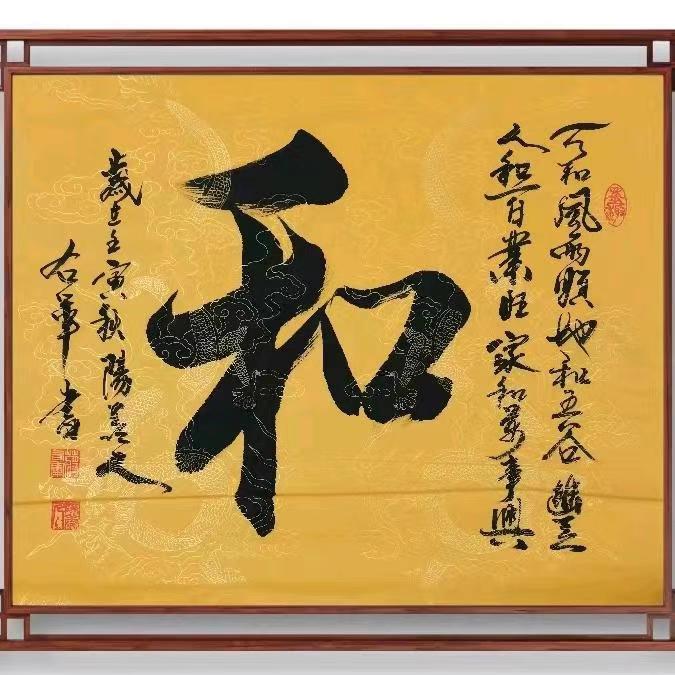 天和風雨順地和五谷豐
人和百業旺家和萬事興
和
歲在壬寅秋陽羨史
右華書